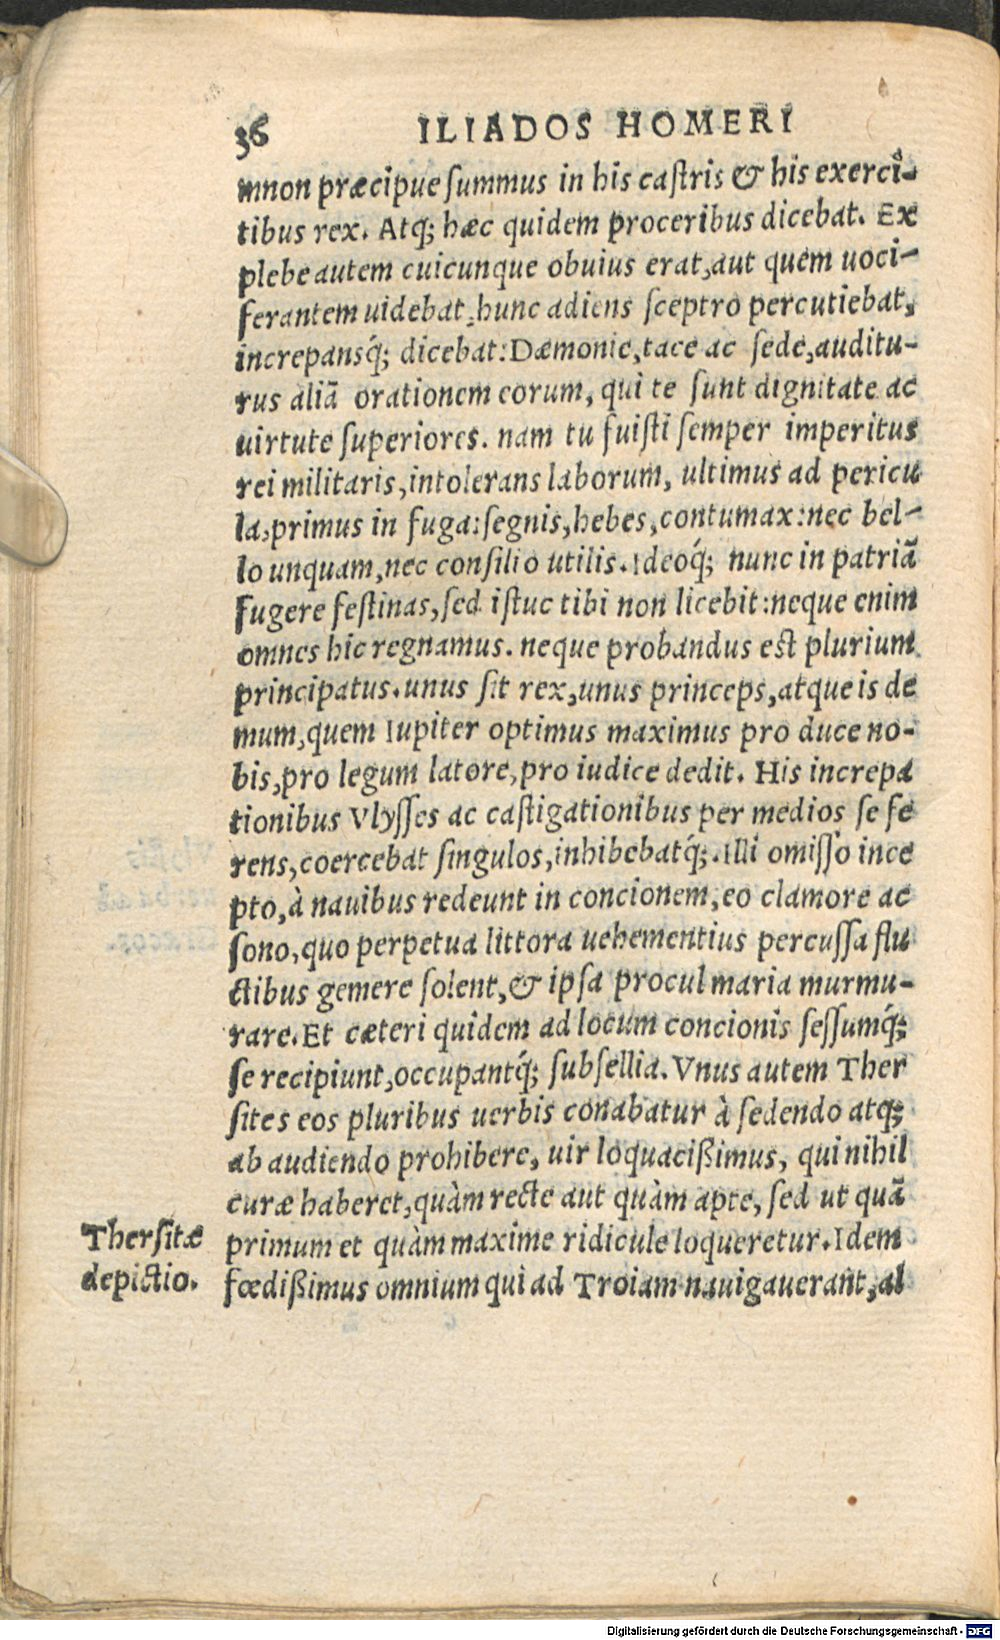 36 ILIADOS HOMERI
mnon præcipue ſummus in his caſtris & his exerci-
tibus rex. Atq; hæc quidem proceribus dicebat. Ex
plebe autem cuicunque obuius erat, aut quem uoci-
ferantem uidebat, hunc adiens ſceptro percutiebat,
increpansq́; dicebat: Dæmonie, tace ac ſede, auditu-
rus aliā orationem eorum, qui te ſunt dignitate ac
uirtute ſuperiores. nam tu fuiſti ſemper imperitus
rei militaris, intolerans laborum, ultimus ad pericu
la, primus in fuga: ſegnis, hebes, contumax: nec bel-
lo unquam, nec conſilio utilis. Ideoq́; nunc in patriā
fugere feſtinas, ſed iſtuc tibi non licebit: neque enim
omnes hic regnamus. neque probandus est plurium
principatus. unus ſit rex, unus princeps, atque is de
mum, quem Iupiter optimus maximus pro duce no-
bis, pro legum latore, pro iudice dedit. His increpa
tionibus Vlyſſes ac caſtigationibus per medios se fe
rens, coercebat ſingulos, inhibebatq́;. Illi omiſſo ince
pto, à nauibus redeunt in concionem, eo clamore ac
ſono, quo perpetua littora uehementius percuſſa flu
ctibus gemere ſolent, & ipſa procul maria murmu-
rare. Et cæteri quidem ad locum concionis ſeſſumq́;
ſe recipiunt, occupantq́; ſubſellia. Vnus autem Ther
ſites eos pluribus uerbis conabatur à ſedendo atq;
ab audiendo prohibere, uir loquacißimus, qui nihil
curæ haberet, quàm recte aut quàm apte, ſed ut quā
primum et quàm maxime ridicule loqueretur. Idem
fœdißimus omnium qui ad Troiam nauigauerant, al
Therſitæ
depictio.
Digitalisierung gefördert durch die Deutsche Forschungsgemeinschaft - DFG